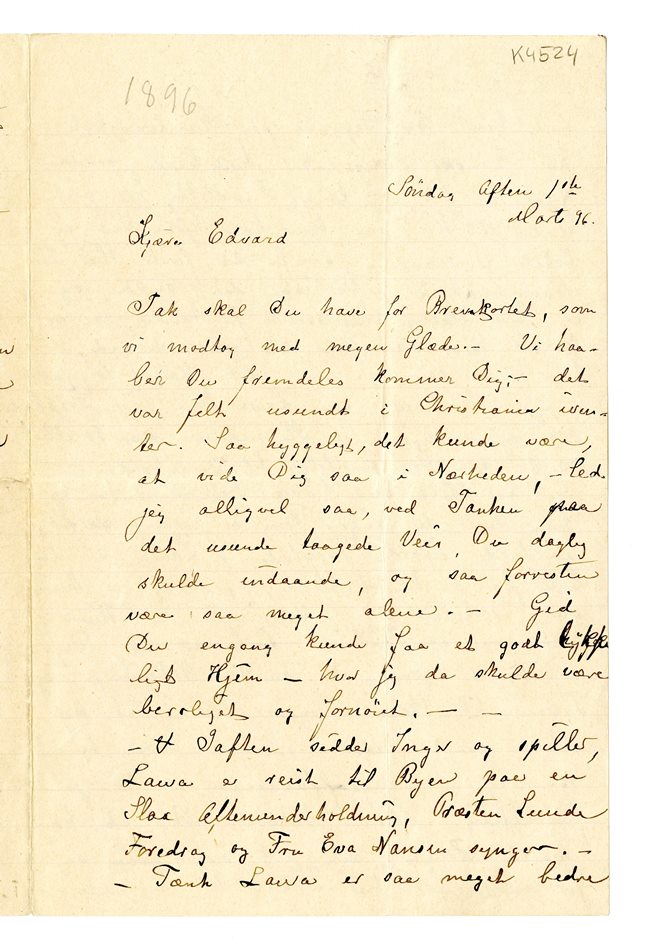 K4524
1896
Söndag Aften 1ste
Marts 96.
Kjære Edvard
Tak skal Du have for Brevkortet, som
vi modtog med megen Glæde. – Vi haa-
ber Du fremdeles kommer Dig; – det
var felt usundt i Christiania ivin-
ter. Saa hyggeligt, det kunde være,
at vide Dig saa i Nærheden, – led
jeg alligvel saa, ved Tanken paa
det usunde taagede Veir, Du daglig
skulde indaande, og saa forresten
være saa meget alene. – Gid
Du engang kunde faa et godt lykke
ligt Hjem – hvor jeg da skulde være
beroliget og fornöiet. – –
– Iaften sidder Inger og spiller,
Laura er reist til Byen paa en
Aftenunderholdning, Præsten Lunde
Foredrag og Fru Eva Nansen synger. –
– Tænk Laura er saa meget bedre